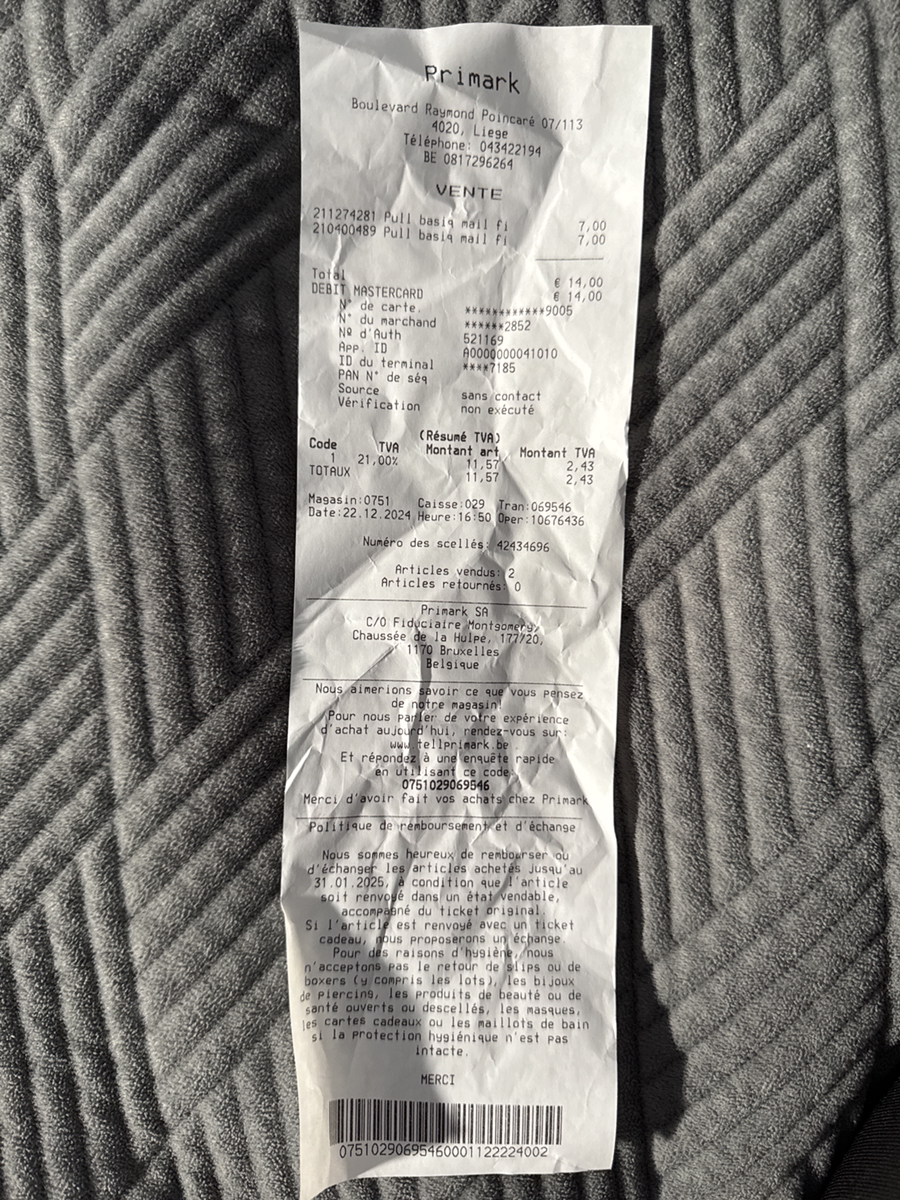 Primark
Boulevard Raymond Poincaré 07/113
4020, Liege
Téléphone: 043422194
BE 0817296264
VENTE
211274281 Pull basiq mail fi 7,00
210400489 Pull basiq mail fi 7,00
Total € 14,00
DEBIT MASTERCARD € 14,00
N° de carte. ************9005
N° du marchand ******2852
Nº d'Auth 521169
App. ID A0000000041010
ID du terminal ****7185
PAN N° de séq
Source sans contact
Vérification non exécuté
(Résumé TVA)
Code TVA Montant art Montant TVA
1 21,00% 11,57 2,43
TOTAUX 11,57 2,43
Magasin:0751 Caisse:029 Tran:069546
Date:22.12.2024 Heure:16:50 Oper:10676436
Numéro des scellés: 42434696
Articles vendus: 2
Articles retournés: 0
Primark SA
C/O Fiduciaire Montgomery,
Chaussée de la Hulpe, 177/20,
1170 Bruxelles
Belgique
Nous aimerions savoir ce que vous pensez
de notre magasin!
Pour nous parler de votre expérience
d'achat aujourd'hui, rendez-vous sur:
www.tellprimark.be
Et répondez à une enquête rapide
en utilisant ce code:
0751029069546
Merci d'avoir fait vos achats chez Primark
Politique de remboursement et d'échange
Nous sommes heureux de rembourser ou
d'échanger les articles achetés jusqu'au
31.01.2025, à condition que l'article
soit renvoyé dans un état vendable,
accompagné du ticket original.
Si l'article est renvoyé avec un ticket
cadeau, nous proposerons un échange.
Pour des raisons d'hygiène, nous
n'acceptons pas le retour de slips ou de
boxers (y compris les lots), les bijoux
de piercing, les produits de beauté ou de
santé ouverts ou descellés, les masques,
les cartes cadeaux ou les maillots de bain
si la protection hygiénique n'est pas
intacte.
MERCI
07510290695460001122224002